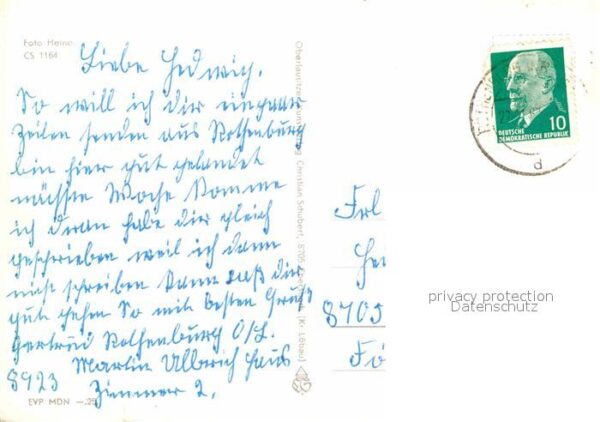 Foto Heine
CS 1164
Liebe Hedwig.
So will ich dir ein paar
Zeilen senden aus Rothenburg
bin hier gut gelandet
nächste Woche komme
ich dran habe dir gleich
geschrieben weil ich dann
nicht schreiben kann laß dir
gut gehen So mit besten Gruß
Gertrud Rothenburg O/L.
Martin Ulbrich Haus
8923 Zimmer 2.
EVP MDN —.25
Christian Schubert, 8705 (Kr. Löbau)
DEUTSCHE
DEMOKRATISCHE REPUBLIK
10
d
Frl
8705
privacy protection
Datenschutz